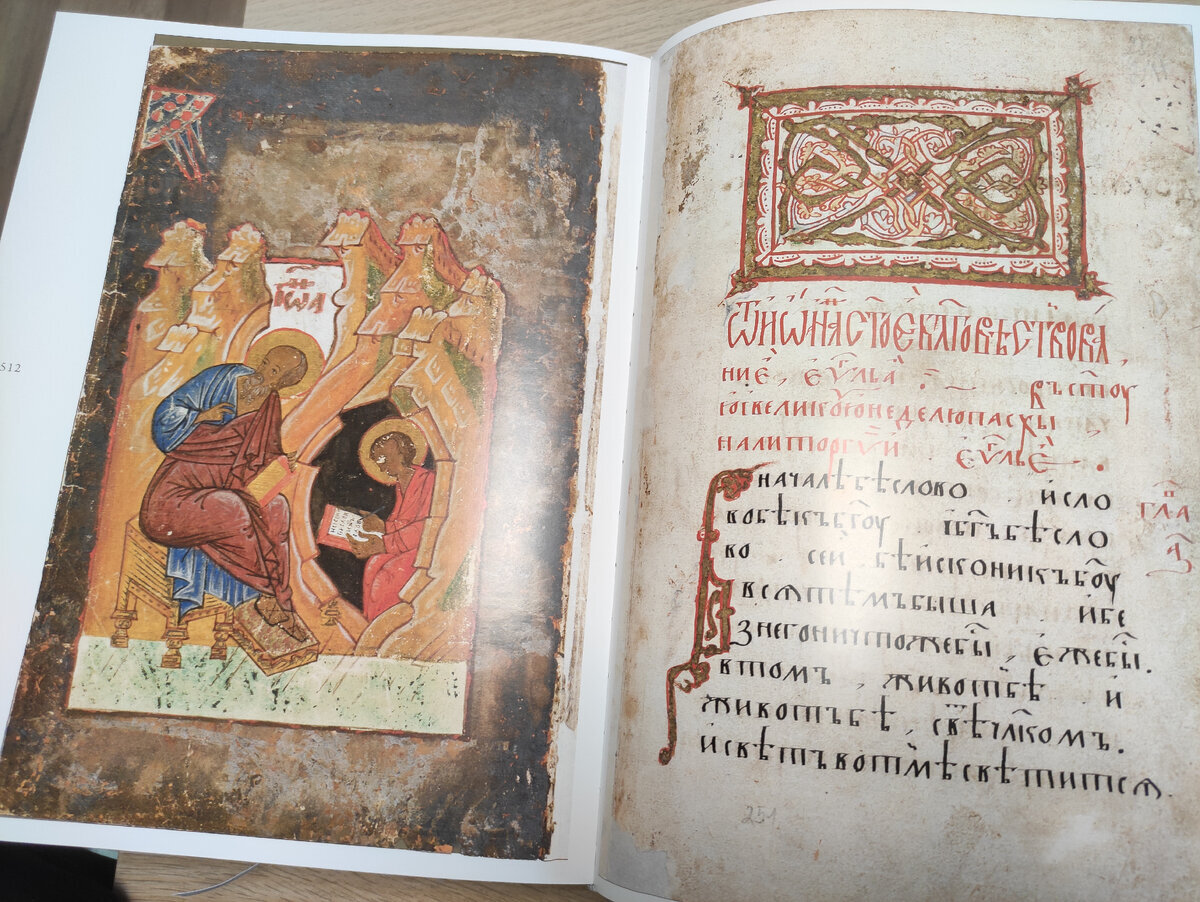 512
І҆ѡа
Ѿ іѡ҃на ст҃ое бл҃говѣствова
ние, єѵ҃лїа. въ ст҃оу
ю великоую неделю пасхы
на литоргїи єѵ҃льє.
начале бѣ слово и сло
гл҃а
во бѣ къ бг҃оу и бг҃ъ бѣ сло
а҃
во сеи бѣ искони къ бг҃оу
вся тѣмъ быша и бе
з него ничтоже бы, єже бы.
в томъ, животъ бѣ и
животъ бѣ, свѣ чл҃комъ.
и свѣтъ во тмѣ свѣтится
251